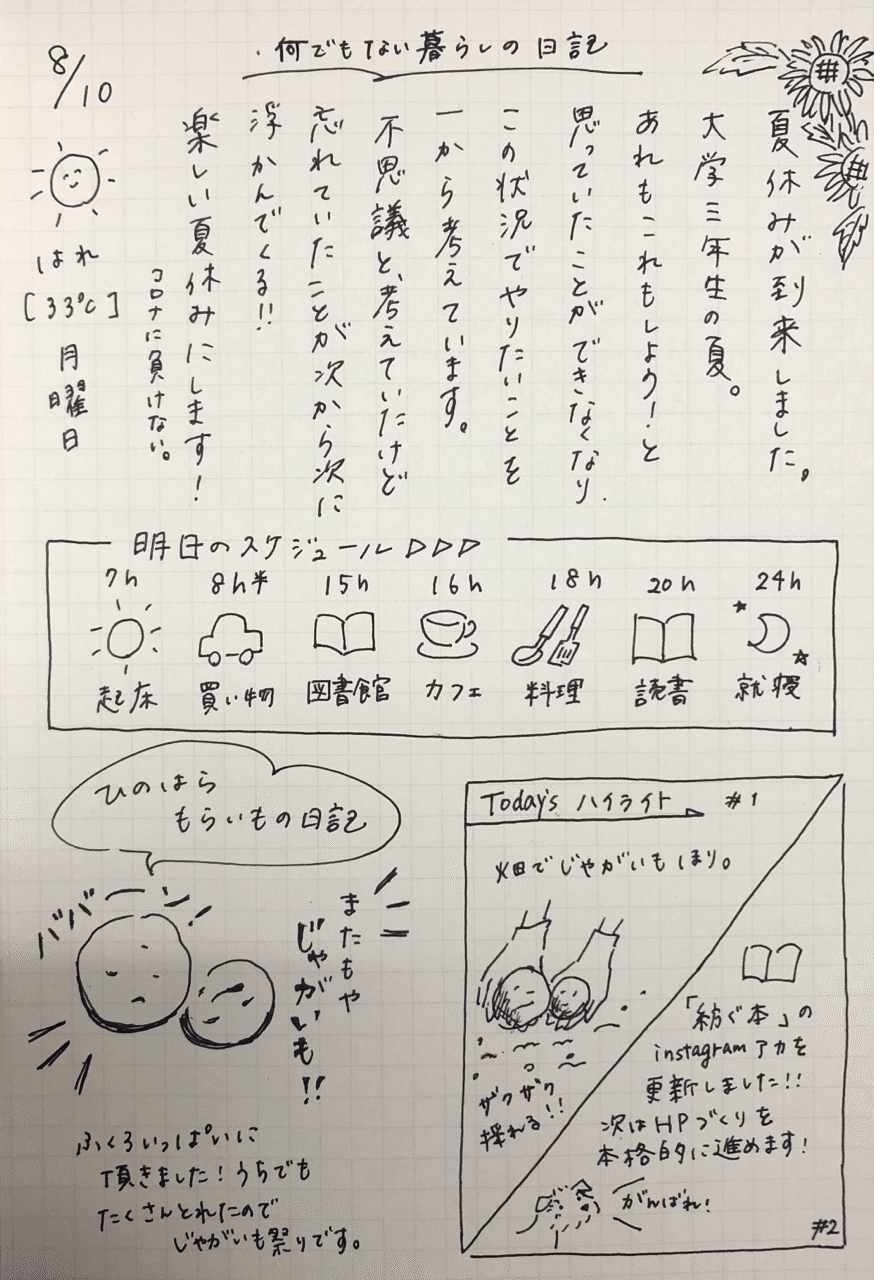 何でもない暮らしの日記
8/10
はれ
[33℃]
月曜日
夏休みが到来しました。
大学三年生の夏。
あれもこれもしよう！と
思っていたことができなくなり、
この状況でやりたいことを
一から考えています。
不思議と、考えていたけど
忘れていたことが次から次に
浮かんでくる!!
楽しい夏休みにします！
コロナに負けない。
明日のスケジュール▷▷▷
7h 8h半 15h 16h 18h 20h 24h
起床 買い物 図書館 カフェ 料理 読書 就寝
ひのはら
もらいもの日記
ババーン!
またもや
じゃがいも!!
ふくろいっぱいに
頂きました！うちでも
たくさんとれたので
じゃがいも祭りです。
Today's ハイライト #1
畑でじゃがいもほり。
ザクザク
採れる!!
「紡ぐ本」の
instagramアカを
更新しました!!
次はHPづくりを
本格的に進めます！
がんばれ！
#2